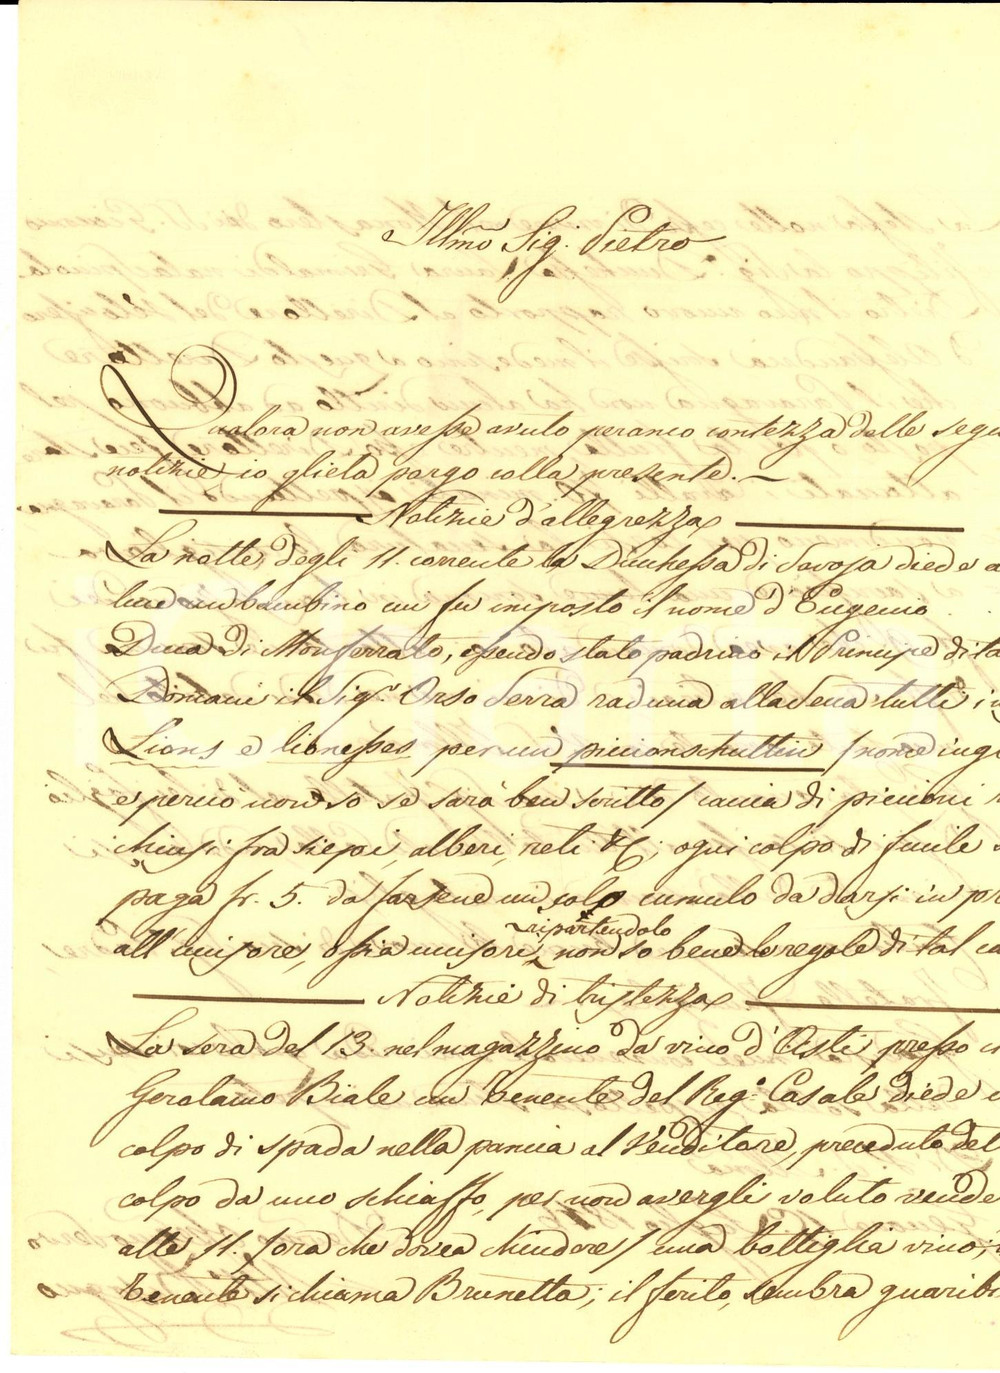 Illmo Sig. Pietro
Qualora non avesse avuto peranco contezza delle segu
notizie io gliela porgo colla presente. —
Notizie d'allegrezza
La notte degli 11. corrente la Duchessa di Savoja diede a
luce un bambino cui fu imposto il nome d'Eugenio
Duca di Monferrato, essendo stato padrino il Principe di
Domani il Sigr. Orso Serra raduna alla Sena tutti i
Lions e lionesses per un piccionschuttin / nome ing
e perciò non so se sarà ben scritto / caccia di piccioni
chiusi fra siepi, alberi, reti &c; ogni colpo di fucile
paga fr. 5. da farsene un sol cumulo da darsi in pr
ripartendolo
all' uccisore, ossia uccisori, non so bene le regole di tal ca
Notizie di tristezza
La sera del 13. nel magazzino da vino d'Asti presso
Gerolamo Biale un Tenente del Reg.o Casale diede
colpo di spada nella pancia al Venditore, preceduto del
colpo da uno schiaffo, per non avergli voluto vende
alle 11. / ora che dovea chiudere / una bottiglia vino;
Tenente si chiama Brunetta; il ferito, sembra guaribi